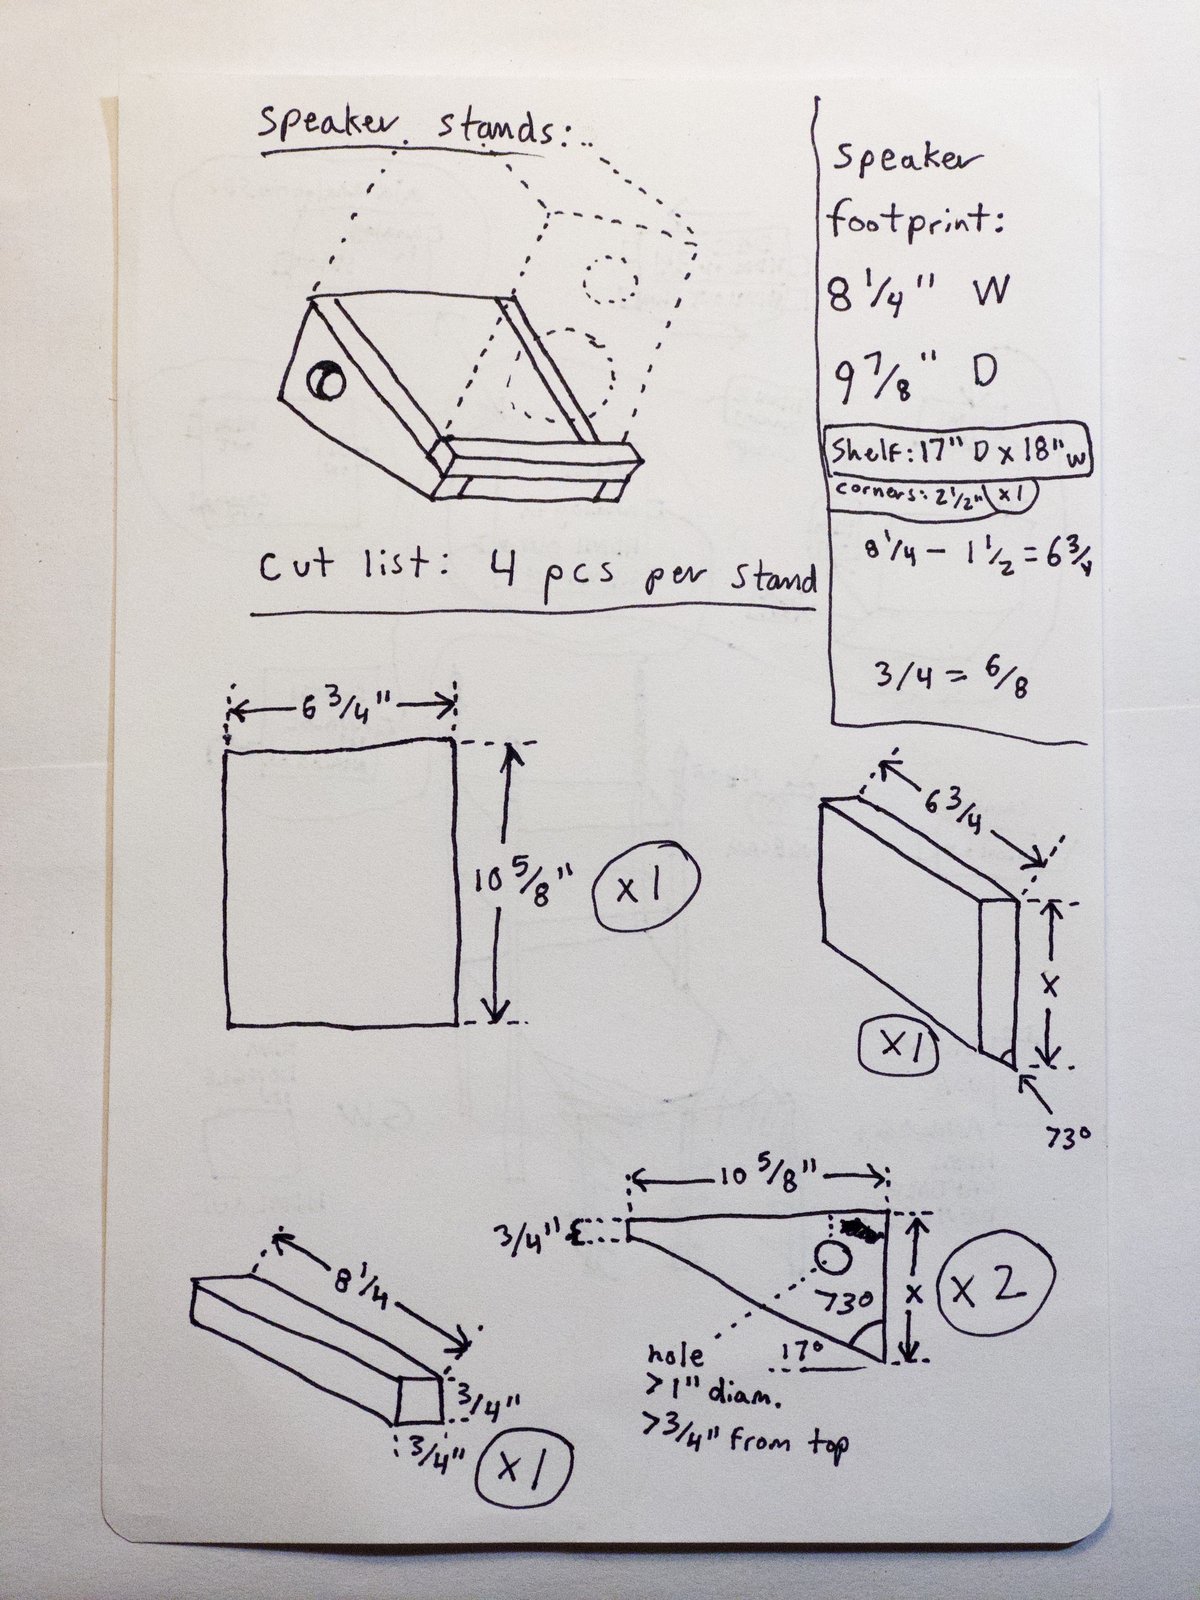 speaker stands:
speaker
footprint:
8 1/4" W
9 7/8" D
Shelf: 17" D x 18" W
corners: 2 1/2" x1
8 1/4 - 1 1/2 = 6 3/4
3/4 = 6/8
cut list: 4 pcs per stand
6 3/4"
10 5/8"
x1
6 3/4
x
x1
73°
10 5/8"
3/4"
73°
x
x2
17°
hole
>1" diam.
>3/4" from top
8 1/4
3/4"
3/4"
x1